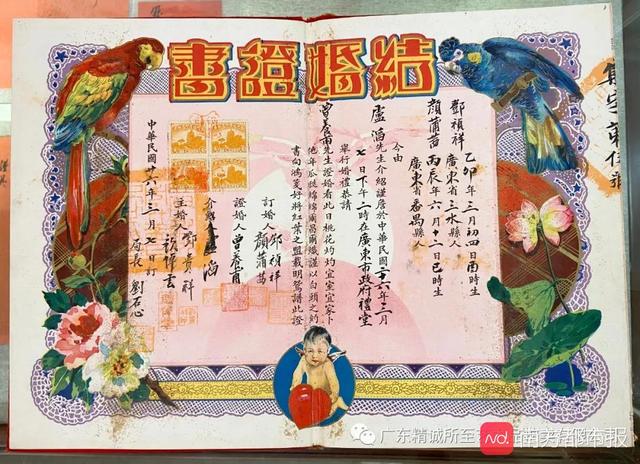 結婚證書
鄧禎祥
乙卯年三月初四日酉時生
廣東省三水縣人
顏蒲茜
丙辰年六月十二日巳時生
廣東省番禺縣人
今由
盧滔先生介紹謹詹於中華民國二十六年三月
七日下午二時在廣東市政府禮堂
舉行婚禮恭請
曾養甫先生證婚看此日桃花灼灼宜室宜家卜
他年瓜瓞綿綿爾昌爾熾謹以白頭之約
書向鴻箋好將紅葉之盟載明鴛譜此證
訂婚人
鄧禎祥
顏蒲茜
證婚人
曾養甫
介紹人
盧滔
主婚人
鄧貴祥
顏偉雲
中華民國廿六年三月七日訂
局長
劉石心
广东精诚所至